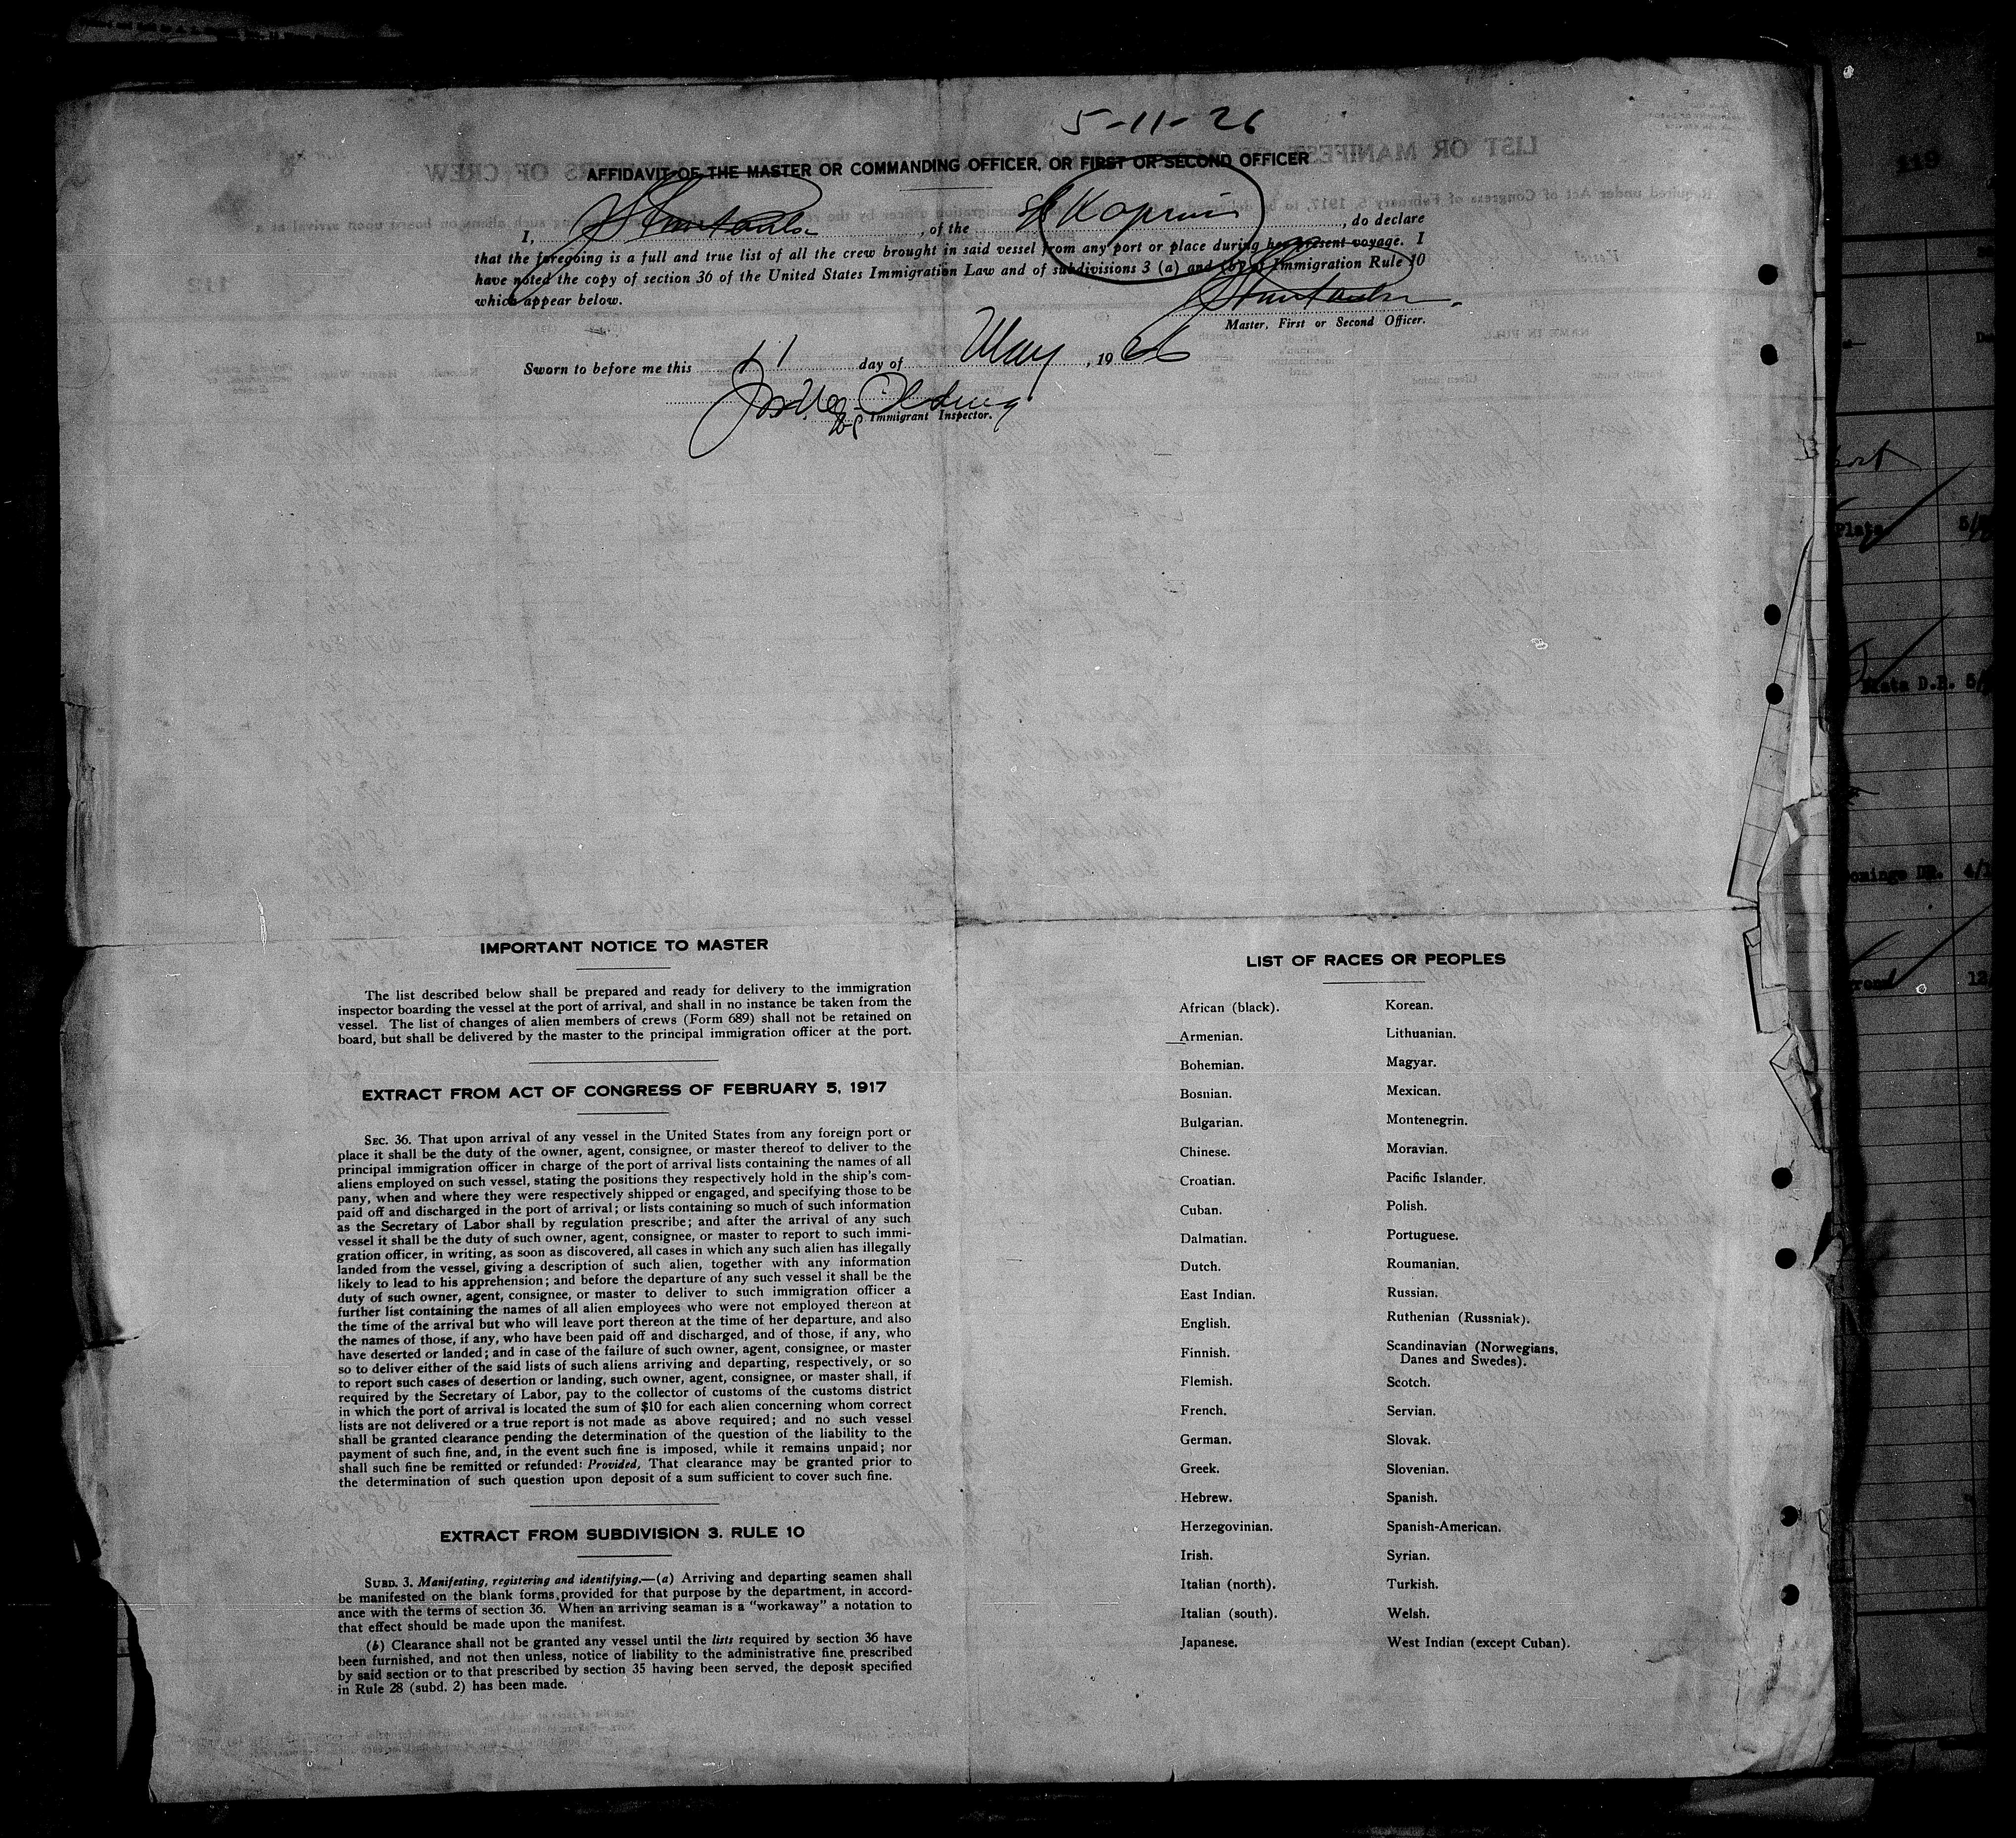 5-11-26
AFFIDAVIT OF THE MASTER OR COMMANDING OFFICER, OR FIRST OR SECOND OFFICER
I, , of the , do declare
that the foregoing is a full and true list of all the crew brought in said vessel from any port or place during her present voyage. I
have noted the copy of section 36 of the United States Immigration Law and of subdivisions 3 (a) and (b) of Immigration Rule 10
which appear below.
Master, First or Second Officer.
Sworn to before me this 11 day of May, 1926
Immigrant Inspector.
IMPORTANT NOTICE TO MASTER
The list described below shall be prepared and ready for delivery to the immigration
inspector boarding the vessel at the port of arrival, and shall in no instance be taken from the
vessel. The list of changes of alien members of crews (Form 689) shall not be retained on
board, but shall be delivered by the master to the principal immigration officer at the port.
EXTRACT FROM ACT OF CONGRESS OF FEBRUARY 5, 1917
SEC. 36. That upon arrival of any vessel in the United States from any foreign port or
place it shall be the duty of the owner, agent, consignee, or master thereof to deliver to the
principal immigration officer in charge of the port of arrival lists containing the names of all
aliens employed on such vessel, stating the positions they respectively hold in the ship's com-
pany, when and where they were respectively shipped or engaged, and specifying those to be
paid off and discharged in the port of arrival; or lists containing so much of such information
as the Secretary of Labor shall by regulation prescribe; and after the arrival of any such
vessel it shall be the duty of such owner, agent, consignee, or master to report to such immi-
gration officer, in writing, as soon as discovered, all cases in which any such alien has illegally
landed from the vessel, giving a description of such alien, together with any information
likely to lead to his apprehension; and before the departure of any such vessel it shall be the
duty of such owner, agent, consignee, or master to deliver to such immigration officer a
further list containing the names of all alien employees who were not employed thereon at
the time of the arrival but who will leave port thereon at the time of her departure, and also
the names of those, if any, who have been paid off and discharged, and of those, if any, who
have deserted or landed; and in case of the failure of such owner, agent, consignee, or master
so to deliver either of the said lists of such aliens arriving and departing, respectively, or so
to report such cases of desertion or landing, such owner, agent, consignee, or master shall, if
required by the Secretary of Labor, pay to the collector of customs of the customs district
in which the port of arrival is located the sum of $10 for each alien concerning whom correct
lists are not delivered or a true report is not made as above required; and no such vessel
shall be granted clearance pending the determination of the question of the liability to the
payment of such fine, and, in the event such fine is imposed, while it remains unpaid; nor
shall such fine be remitted or refunded: Provided, That clearance may be granted prior to
the determination of such question upon deposit of a sum sufficient to cover such fine.
EXTRACT FROM SUBDIVISION 3. RULE 10
SUBD. 3. Manifesting, registering and identifying.—(a) Arriving and departing seamen shall
be manifested on the blank forms provided for that purpose by the department, in accord-
ance with the terms of section 36. When an arriving seaman is a "workaway" a notation to
that effect should be made upon the manifest.
(b) Clearance shall not be granted any vessel until the lists required by section 36 have
been furnished, and not then unless, notice of liability to the administrative fine prescribed
by said section or to that prescribed by section 35 having been served, the deposit specified
in Rule 28 (subd. 2) has been made.
LIST OF RACES OR PEOPLES
African (black).
Armenian.
Bohemian.
Bosnian.
Bulgarian.
Chinese.
Croatian.
Cuban.
Dalmatian.
Dutch.
East Indian.
English.
Finnish.
Flemish.
French.
German.
Greek.
Hebrew.
Herzegovinian.
Irish.
Italian (north).
Italian (south).
Japanese.
Korean.
Lithuanian.
Magyar.
Mexican.
Montenegrin.
Moravian.
Pacific Islander.
Polish.
Portuguese.
Roumanian.
Russian.
Ruthenian (Russniak).
Scandinavian (Norwegians,
Danes and Swedes).
Scotch.
Servian.
Slovak.
Slovenian.
Spanish.
Spanish-American.
Syrian.
Turkish.
Welsh.
West Indian (except Cuban).
119
Plata
D.R.